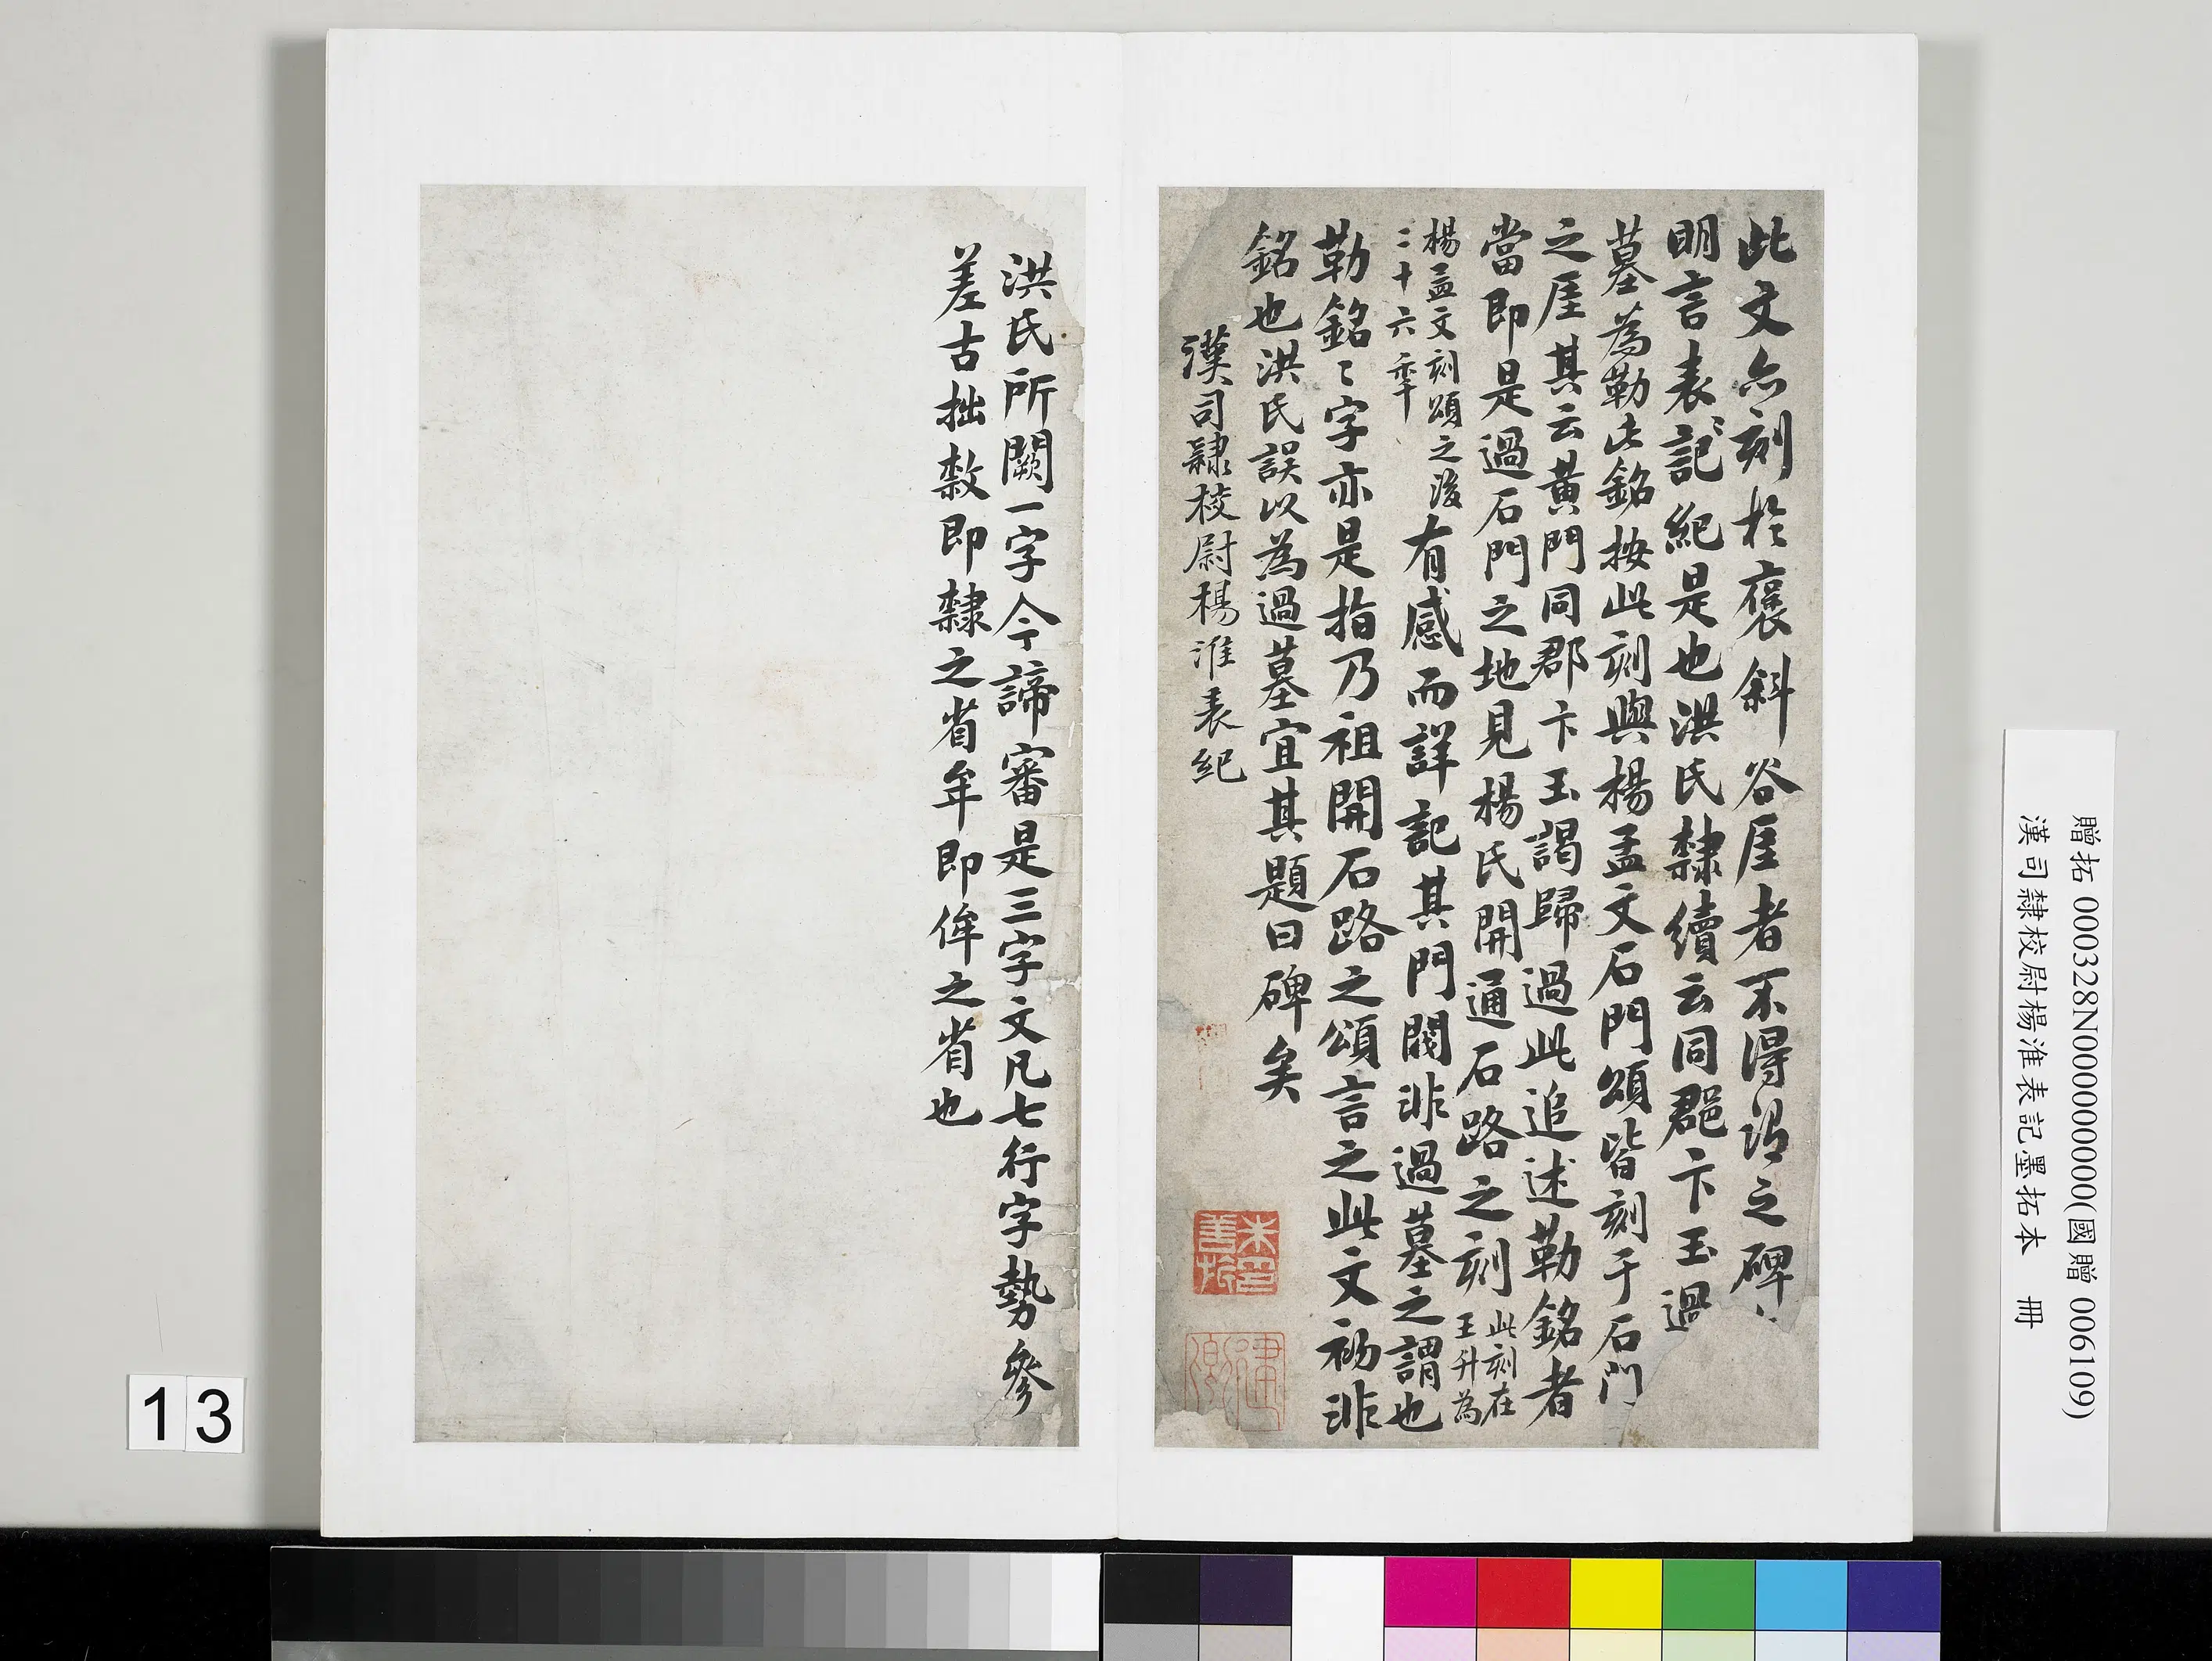 此文亦刻於褒斜谷厓者不得謂之碑
明言表記〻紀是也洪氏隸續云同郡卞玉過
墓為勒此銘按此刻與楊孟文石門頌皆刻于石門
之厓其云黃門同郡卞玉謁歸過此追述勒銘者
當即是過石門之地見楊氏開通石路之刻此刻在
王升為
楊孟文刻頌之後
二十六年有感而詳記其門閥非過墓之謂也
勒銘〻字亦是指乃祖開石路之頌言之此文初非
銘也洪氏誤以為過墓宜其題曰碑矣
漢司隸校尉楊淮表紀
洪氏所闕一字今諦審是三字文凡七行字勢參
差古拙敹即隸之省牟即侔之省也
贈拓 000328N000000000(國贈 006109)
漢司隸校尉楊淮表記墨拓本 冊
13